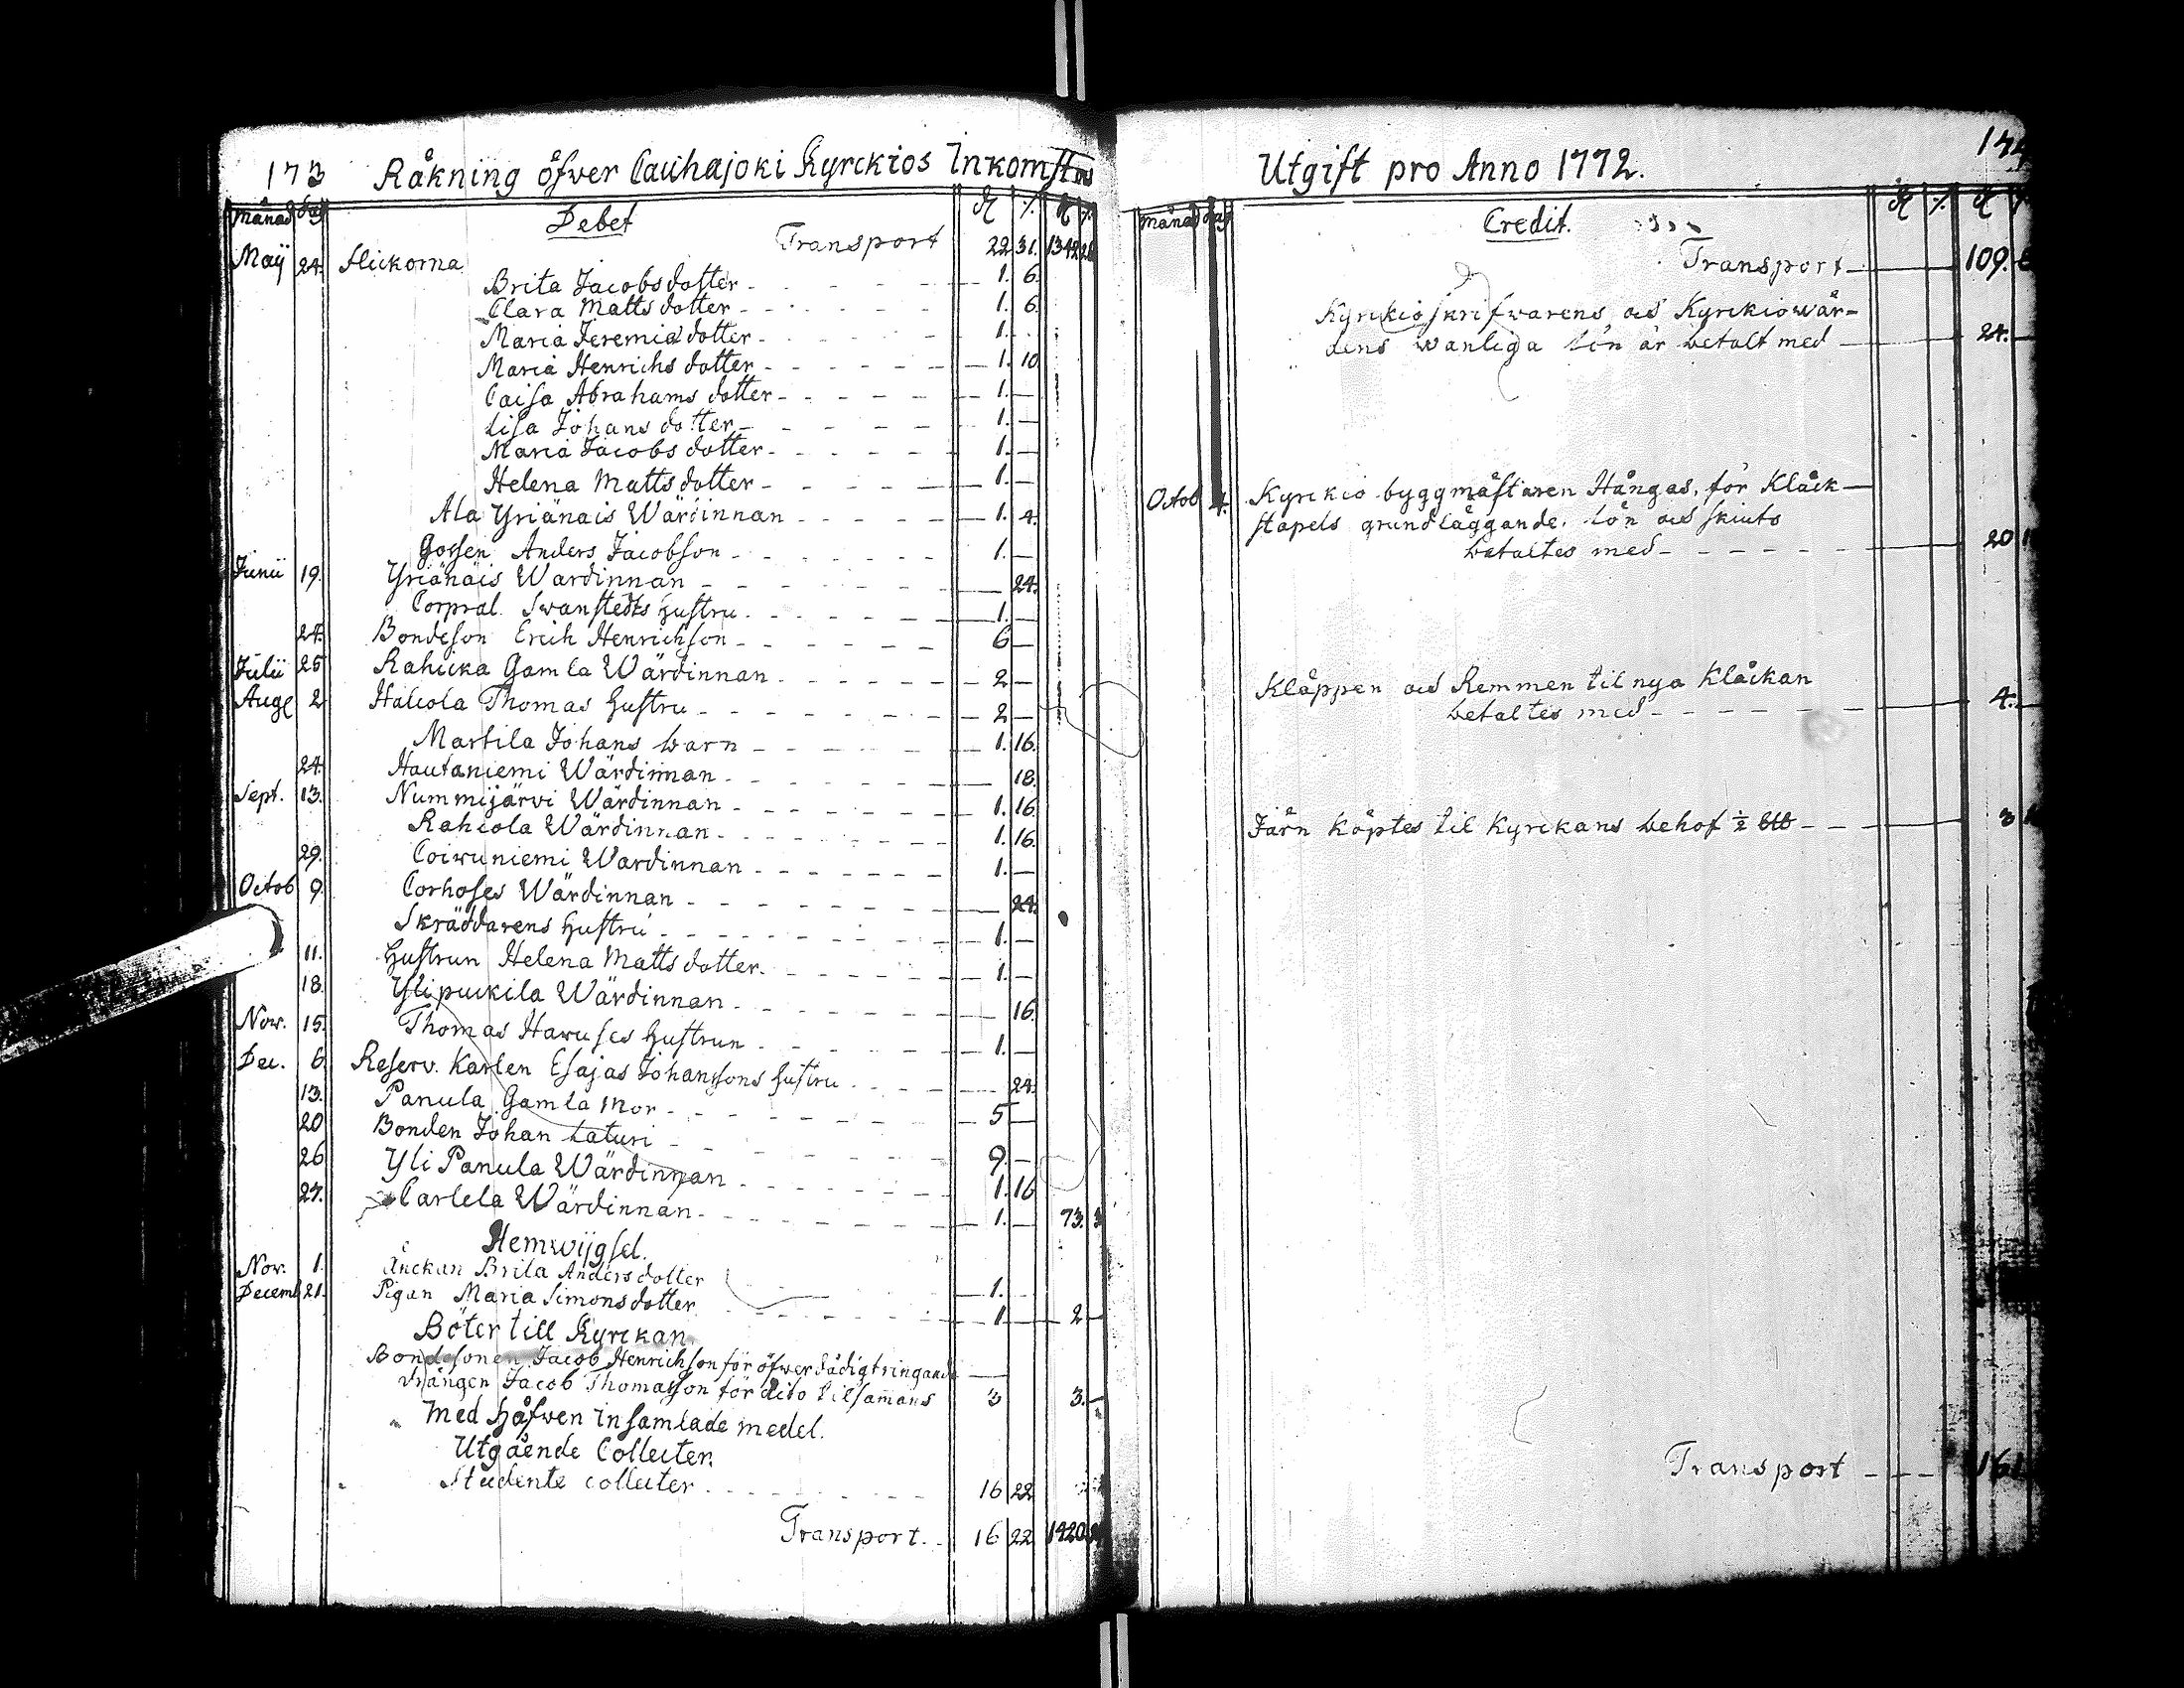 173 Råkning öfver Cauhajoki Kyrckios Inkomst
Månad dag Debet
Transport 22 31. 1342
Maÿ 24. flickorna
Brita Jacobsdotter - 1. 6.
Clara Matts dotter - 1. 6.
Maria Jeremiæ dotter - 1.
Maria Henrichs dotter - 1. 10.
Caisa Abrahams dotter - 1. —
Lisa Johans dotter - 1. —
Maria Jacobs dotter - 1. —
Helena Matts dotter - 1. —
Ala Yriänäis Wärdinnan - 1. 4.
Gossen Anders Jacobson - 1. —
Junii 19. Yriänäis Wärdinnan - — 24.
Corpral Swanstedts hustru - 1. —
24. Bondeson Erich Henrichson - 6 —
Julii 25 Rahicka Gamla Wärdinnan - 2 —
Aug 2 Thomas hustru - 2 —
Martila Johans barn - 1. 16.
24. Hautaniemi Wärdinnan - 18.
Sept. 13. Nummijärvi Wärdinnan - 1. 16
Rahcola Wärdinnan - 1. 16.
29. Coiwuniemi Wärdinnan - 1. —
Octob 9. Corhoses Wärdinnan - — 24.
Skräddarens hustru - 1. —
11. hustrun Helena Matts dotter - 1. —
18. Ylipuckila Wärdinnan - 16.
Nov. 15. Thomas Hawuses hustrun - 1. —
Dec. 6. Reserv. Karlen Esajas Johanssons hustru - 24.
13. Panula Gamla Mor - 5 —
20 Bonden Johan Laturi - 9. —
26 Yli Panula Wärdinnan - 1. 16
27. Carlela Wärdinnan - 1. — 73.
Hemwijgsel.
Nov. 1. Änckan Brita Andersdotter 1.
Decemb 21. Pigan Maria Simonsdotter 1. 2 —
Böter till Kyrckan.
Bondesonen Jacob Henrichson för öfwerdådigt
drängen Jacob Thomasson för dito tilsamans 3 3. —
Med håfwen insamlade medel.
Utgående Collecter.
Studente collecter - 16 22
Transport. 16 22 1420
Utgift pro Anno 1772.
Månad dag Credit.
Transport — 109.
Kyrckioskrifwarens och Kyrckiowär-
dens wanliga lön är betalt med — 24. —
Octob 4. Kyrckio byggmästaren Hångas, för Klåck-
stapels grundläggande, lön och skiuts
betaltes med - 20
Kläppen och Remmen til nya Klåckan
betaltes med - 4. —
Järn köptes til Kyrckans behof ½ - 3
Transport - 161